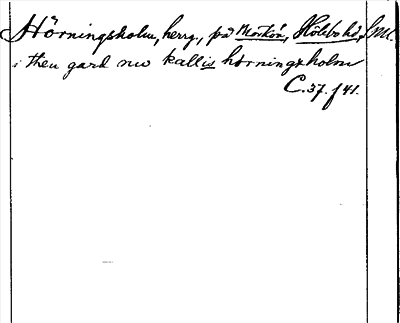 Hörningsholm, herrg., på Mörkön, Hölebo hd, Sml.
i then gard nw kallis hörningxholm
C. 37. f 41.